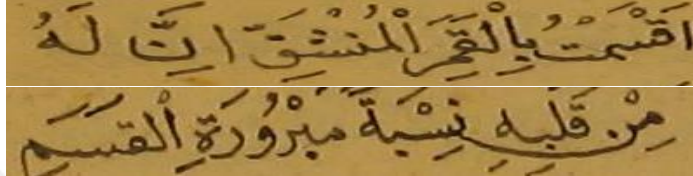 اَقْسَمْتُ بِالْقَمَرِ الْمُنْشَقِّ اِنَّ لَهُ
مِنْ قَلْبِهِ نِسْبَةً مَبْرُوْرَةِ الْقَسَمِ